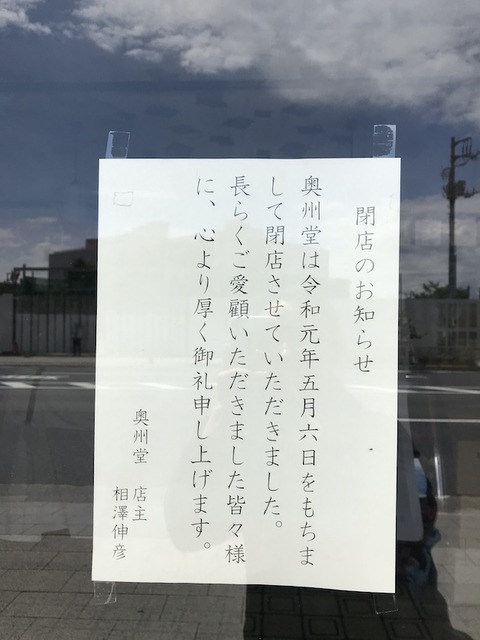 閉店のお知らせ
奥州堂は令和元年五月六日をもちま
して閉店させていただきました。
長らくご愛顧いただきました皆々様
に、心より厚く御礼申し上げます。
奥州堂 店主
相澤伸彦